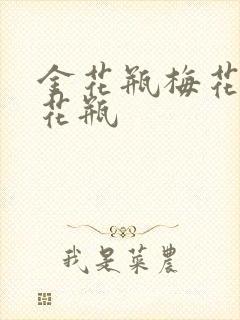 金花瓶梅花
花瓶
我是菜農